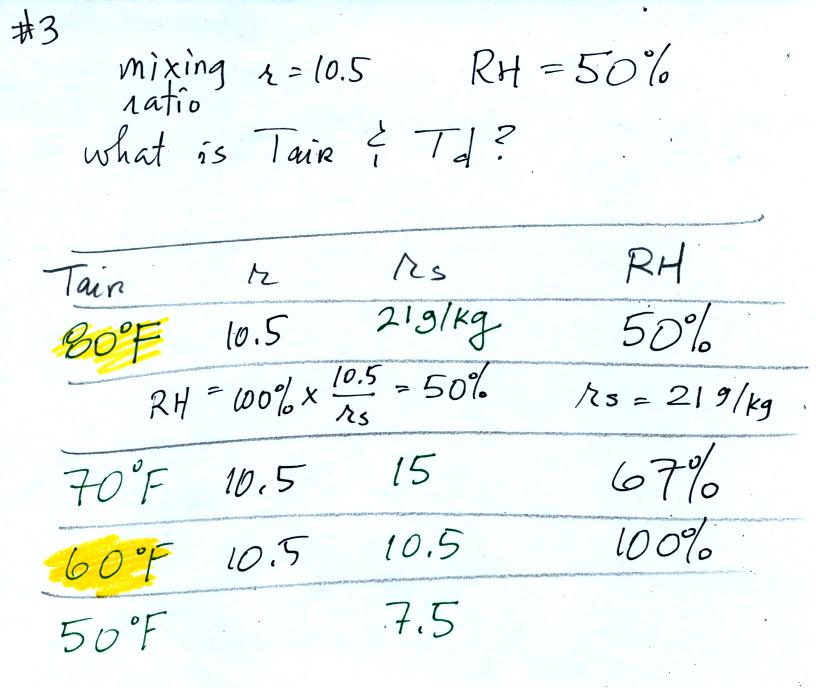 #3
mixing r = 10.5 RH = 50%
ratio
what is Tair & Td?
Tair r rs RH
80°F 10.5 21g/kg 50%
RH = 100% x 10.5/rs = 50% rs = 21 g/kg
70°F 10.5 15 67%
60°F 10.5 10.5 100%
50°F 7.5